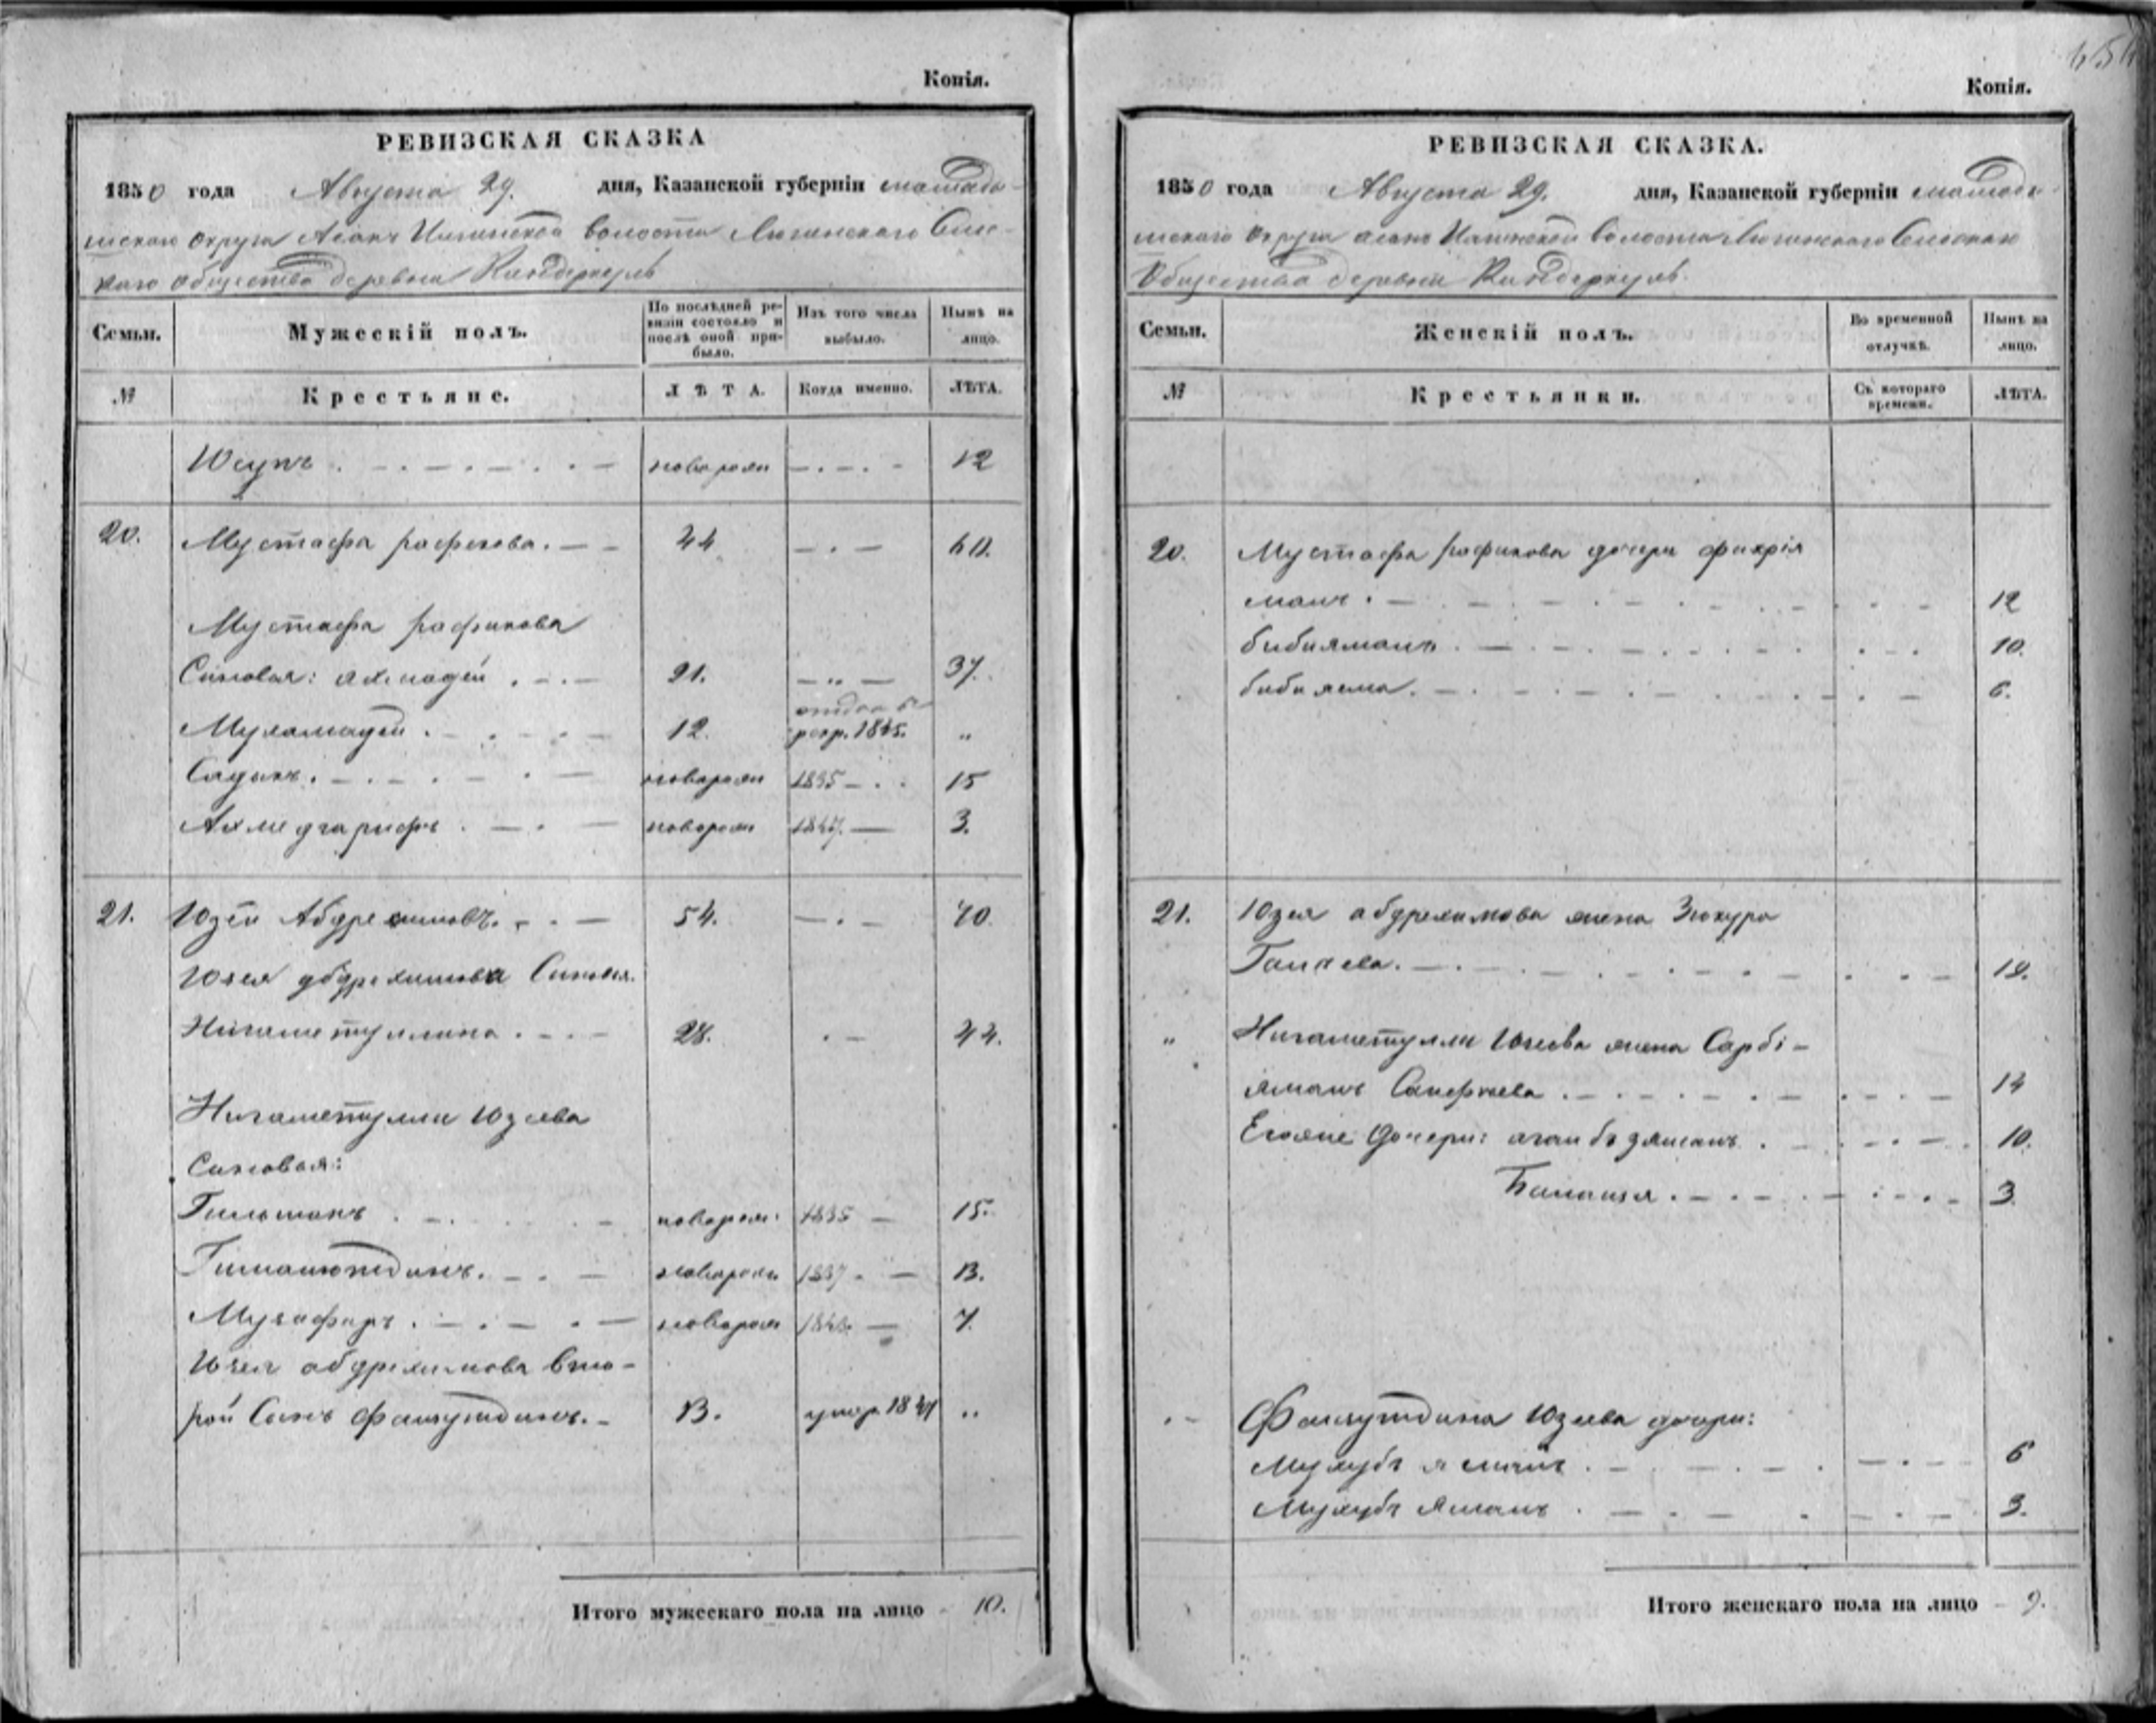 Копія.
РЕВИЗСКАЯ СКАЗКА
1850 года Августа 29. дня, Казанской губерніи мамады-
шскаго округа Асанъ Илгинской волости Лызинскаго Сель-
скаго общества деревни Киндеркуль
Семьи. Мужескій полъ. По послѣдней ревизіи состояло и послѣ оной прибыло. Изъ того числа выбыло. Нынѣ на лицо.
№ Крестьяне. ЛѢТА. Когда именно. ЛѢТА.
Юсупъ новорожд 12
20. Мустафа рафикова. 44 60.
Мустафа рафикова
Сыновья: ахмадей 21. 37.
Мухамадей 12. рекр. 1845. "
Садыкъ новорожд 1835 15
Ахмедгарифъ новорожд 1847. 3.
21. Юзей Абдрехимовъ. 54. 70.
Юзея абдрехимова Сыновья.
Нигаметуллина 28. 44.
Нигаметулли Юзеева
Сыновья:
Гильманъ новорож. 1835 15.
Гимаютдинъ. новорожд 1837. 13.
Музафаръ новорожд 1843. 7.
Юзея абдрехимова вто-
рой Сынъ Фахрутдинъ. 13. умер. 1841 "
Итого мужескаго пола на лицо 10.
Копія.
РЕВИЗСКАЯ СКАЗКА.
1850 года Августа 29. дня, Казанской губерніи мамады-
шскаго Округа асанъ Илгинской волости Лызинскаго Сельскаго
Общества деревни Киндеркуль.
Семьи. Женскій полъ. Во временной отлучкѣ. Нынѣ на лицо.
№ Крестьянки. Съ котораго времени. ЛѢТА.
20. Мустафа рафикова дочери фахрія
малъ. 12
бибиямалъ 10.
биби асма. 6.
21. Юзея абдрехимова жена Зюхура
19.
" Нигаметулли Юзеева жена Сарбі-
ямалъ 14
Егоже Дочери: 10.
3.
Фахрутдина Юзеева дочери:
Мухубъ ямалъ 6
Мухубъ Ямалъ 3.
Итого женскаго пола на лицо 9.